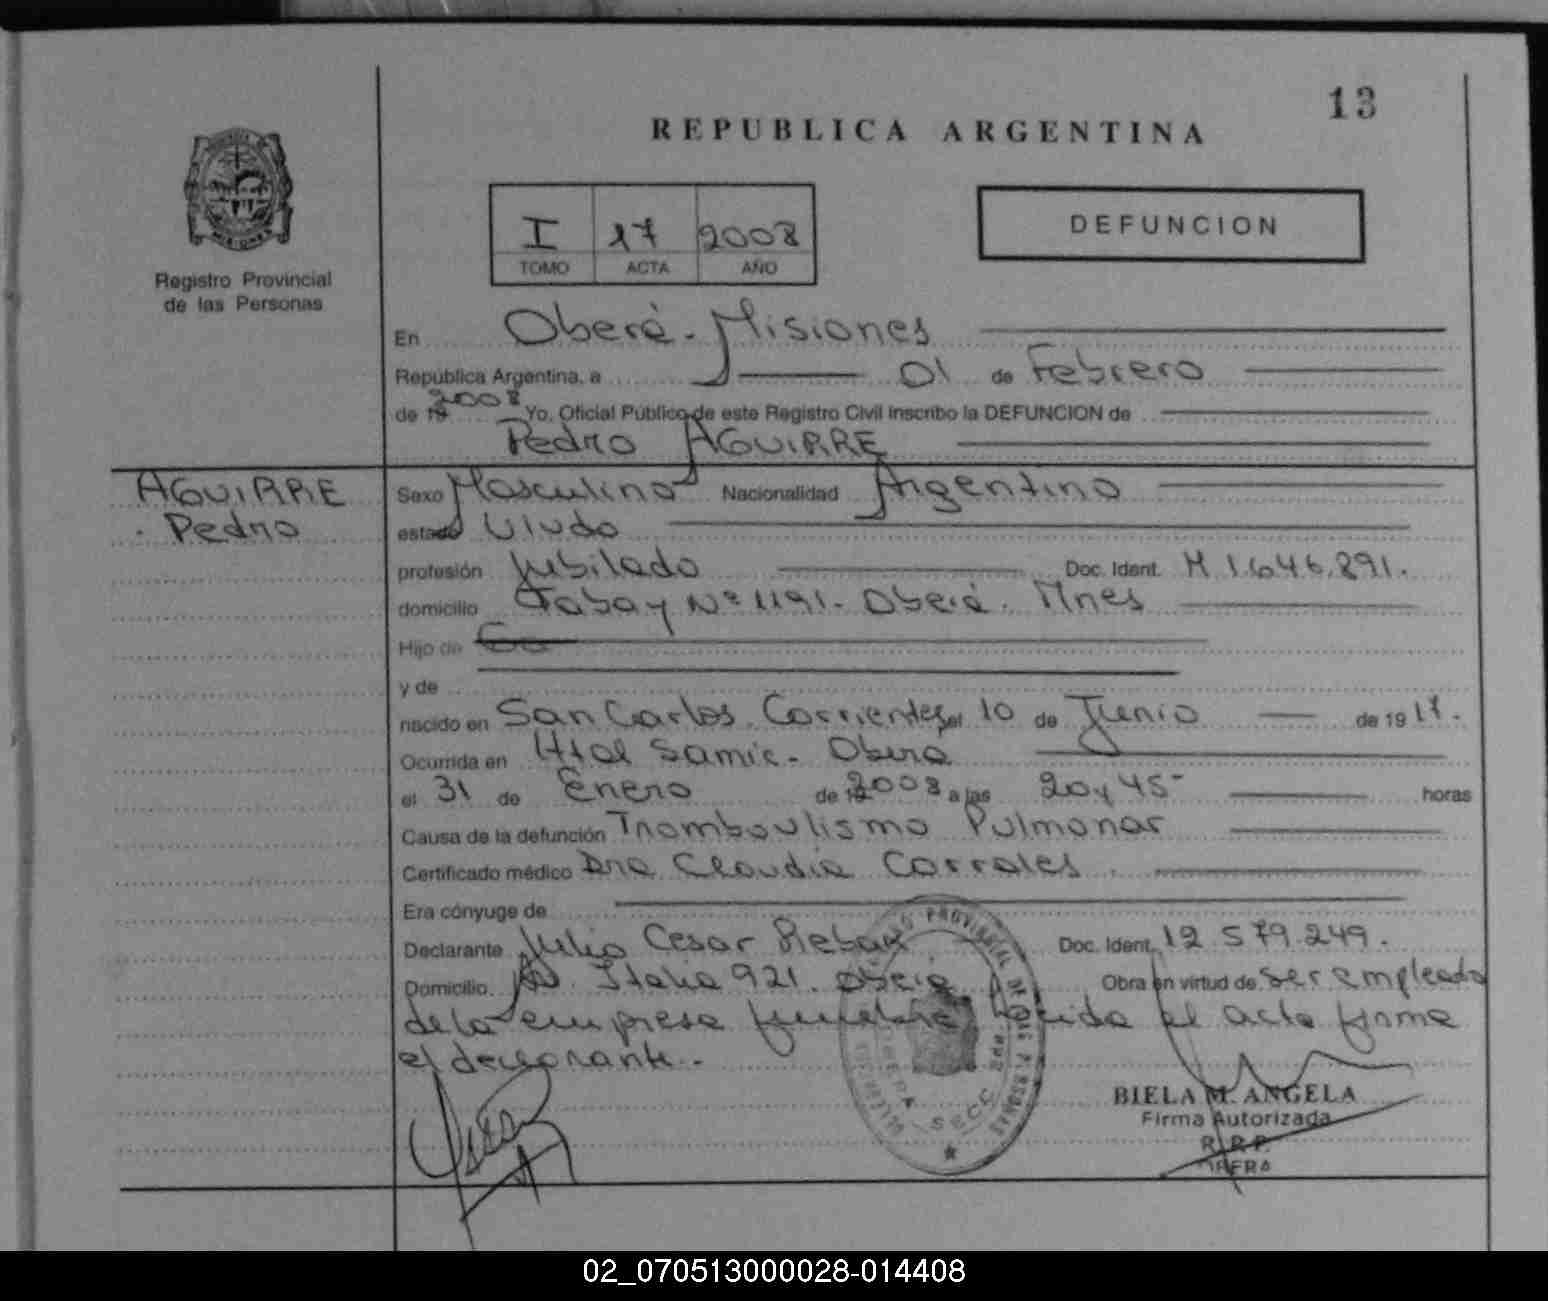 13
REPUBLICA ARGENTINA
DEFUNCION
I 17 2008
TOMO ACTA AÑO
MISIONES
Registro Provincial
de las Personas
En Oberá - Misiones
República Argentina, a 01 de Febrero
de 19 2008 Yo, Oficial Público de este Registro Civil inscribo la DEFUNCION de
Pedro AGUIRRE
AGUIRRE
Pedro
Sexo Masculino Nacionalidad Argentino
estado Viudo
profesión Jubilado Doc. Ident. M 1.646.891.
domicilio Tabay Nº 1191. Oberá. Mnes
Hijo de
y de
nacido en San Carlos. Corrientes, el 10 de Junio de 19 17.
Ocurrida en Htal Samic. Obera
el 31 de Enero de 19 2008 a las 20 y 45 horas
Causa de la defunción Tromboulismo Pulmonar
Certificado médico Dra Claudia Corrales
Era cónyuge de
Declarante Julio Cesar Doc. Ident. 12.579.249.
Domicilio Av. Italia 921. Oberá Obra en virtud de ser empleado
de la empresa funebre Leida el acta firma
el declarante.-
BIELA M. ANGELA
Firma Autorizada
R.R.P.
OBERA
02_070513000028-014408